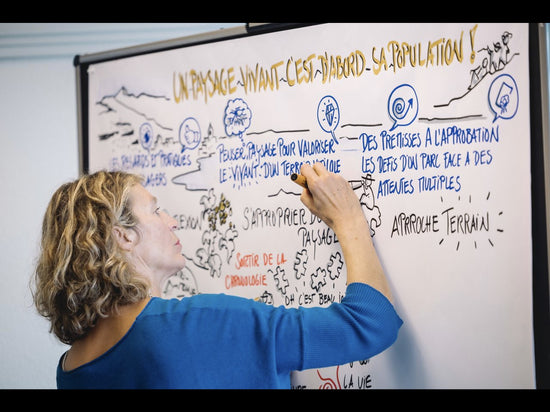 UN PAYSAGE VIVANT C'EST D'ABORD SA POPULATION !
LES REGARDS ET PRATIQUES
PENSER PAYSAGE POUR VALORISER
LE VIVANT D'UN TERROIR
DES PRÉMISSES À L'APPROBATION
LES DÉFIS D'UN PARC FACE À DES
ATTENTES MULTIPLES
S'APPROPRIER
PAYSAGE
APPROCHE TERRAIN
SORTIR DE LA
CHRONOLOGIE
OH C'EST BEAU
LA VIE